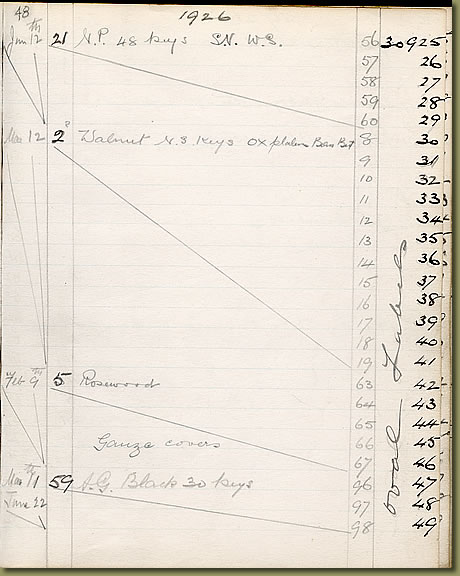 48 1926
Jan 12th 21 N.P. 48 keys S.N. W.S. 56 30925
57 26
58 27
59 28
60 29
12 2 Walnut N.S. Keys 8 30
9 31
10 32
11 33
12 34
13 35
14 36
15 37
16 38
17 39
18 40
19 41
Feb 9th 5 Rosewood 63 42
64 43
65 44
Gauze covers 66 45
67 46
59 Black 30 keys 96 47
June 22 97 48
98 49
oval Labels